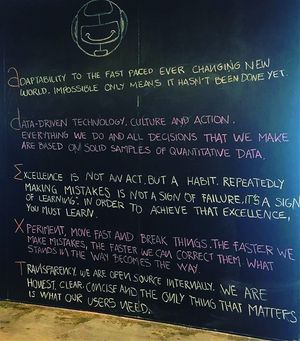 aDAPTABILITY TO THE FAST PACED EVER CHANGING NEW
WORLD. IMPOSSIBLE ONLY MEANS IT HASN'T BEEN DONE YET.
dATA-DRIVEN TECHNOLOGY, CULTURE AND ACTION.
EVERYTHING WE DO AND ALL DECISIONS THAT WE MAKE
ARE BASED ON SOLID SAMPLES OF QUANTITATIVE DATA.
EXCELLENCE IS NOT AN ACT, BUT A HABIT. REPEATEDLY
MAKING MISTAKES IS NOT A SIGN OF FAILURE, IT'S A SIGN
OF LEARNING. IN ORDER TO ACHIEVE THAT EXCELLENCE,
YOU MUST LEARN.
XPERIMENT, MOVE FAST AND BREAK THINGS. THE FASTER WE
MAKE MISTAKES, THE FASTER WE CAN CORRECT THEM WHAT
STANDS IN THE WAY BECOMES THE WAY.
TRANSPARENCY. WE ARE OPEN SOURCE INTERNALLY. WE ARE
HONEST, CLEAR, CONCISE AND THE ONLY THING THAT MATTERS
IS WHAT OUR USERS NEED.